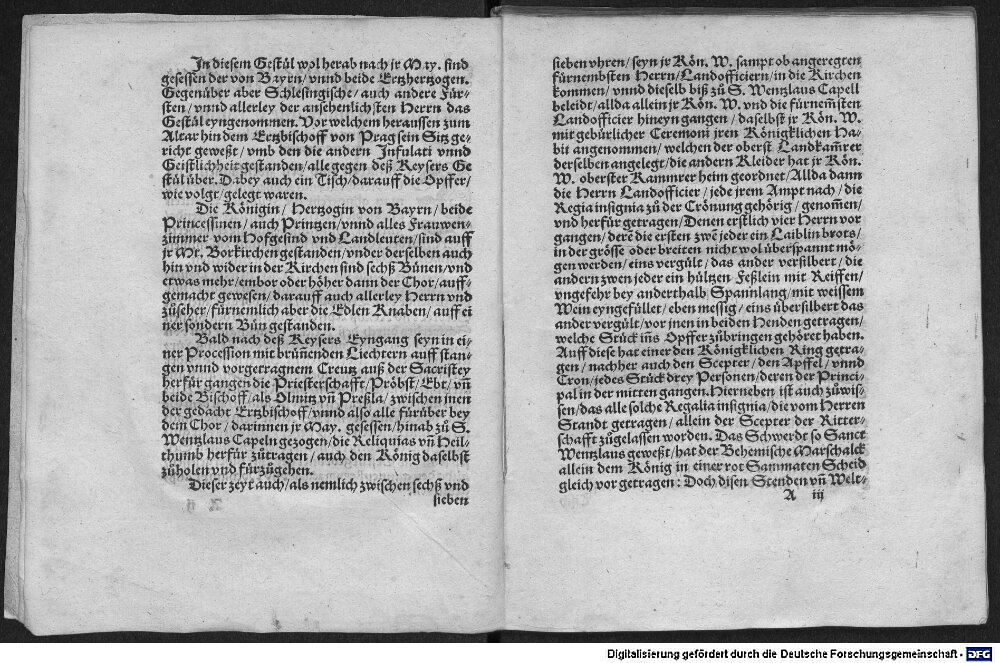 In diesem Gestůl wol herab nach jr May. sind
gesessen der von Bayrn/ vnnd beide Ertzhertzogen.
Gegenüber aber Schlesingische/ auch andere Für-
sten/ vnnd allerley der ansehenlichsten Herrn das
Gestůl eyngenommen. Vor welchem heraussen zum
Altar hin dem Ertzbischoff von Prag sein Sitz ge-
richt geweßt/ vmb den die andern Infulati vnnd
Geistlichheit gestanden/ alle gegen deß Keysers Ge
stůl über. Dabey auch ein Tisch/ darauff die Opffer/
wie volgt/ gelegt waren.
Die Königin/ Hertzogin von Bayrn/ beide
Princessinen/ auch Printzen/ vnnd alles Frauwen-
zimmer vom Hofgesind vnd Landleuten/ sind auff
jr Mt. Borkirchen gestanden/ vnder derselben auch
hin vnd wider in der Kirchen sind sechß Bünen/ vnd
etwas mehr/ embor oder höher dann der Chor/ auff-
gemacht gewesen/ darauff auch allerley Herrn vnd
zůseher/ fürnemlich aber die Edlen Knaben/ auff ei
ner sondern Bün gestanden.
Bald nach deß Keysers Eyngang seyn in ei-
ner Procession mit brünenden Liechtern auff stan-
gen vnnd vorgetragnem Creutz auß der Sacristey
herfür gangen die Priesterschafft/ Pröbst/ Ebt/ vñ
beide Bischoff/ als Olmitz vñ Preßla/ zwischen jnen
der gedacht Ertzbischoff/ vnnd also alle fürüber bey
dem Chor/ darinnen jr May. gesessen/ hinab zů S.
Wentzlaus Capeln gezogen/ die Reliquias vñ Heil-
thumb herfür zůtragen/ auch den König daselbst
zůholen vnd fürzůgehen.
Dieser zeyt auch/ als nemlich zwischen sechß vnd
sieben
sieben vhren/ seyn jr Kön. W. sampt ob angeregten
fürnembsten Herrn/ Landofficiern/ in die Kirchen
kommen/ vnnd dieselb biß zů S. Wentzlaus Capell
beleidt/ allda allein jr Kön. W. vnd die fürnem̃sten
Landofficier hineyn gangen/ daselbst jr Kön. W.
mit gebürlicher Ceremoni jren Königklichen Ha-
bit angenommen/ welchen der oberst Landkam̃rer
derselben angelegt/ die andern Kleider hat jr Kön.
W. oberster Kammrer heim geordnet/ Allda dann
die Herrn Landofficier/ jede jrem Ampt nach/ die
Regia insignia zů der Crönung gehörig/ genom̃en/
vnd herfür getragen/ Denen erstlich vier Herrn vor
gangen/ derẽ die ersten zwẽ jeder ein Laiblin brots/
in der grösse oder breiten nicht wol überspannt mö-
gen werden/ eins vergült/ das ander versilbert/ die
andern zwen jeder ein hültzen Feßlein mit Reiffen/
vngefehr bey anderthalb Spannlang/ mit weissem
Wein eyngefüllet/ eben messig/ eins übersilbert das
ander vergült/ vor jnen in beiden Henden getragen/
welche Stück ins Opffer zůbringen gehöret haben.
Auff diese hat einer den Königklichen Ring getra-
gen/ nachher auch den Scepter/ den Apffel/ vnnd
Cron/ jedes Stück drey Personen/ deren der Princi-
pal in der mitten gangen. Hierneben ist auch zůwis-
sen/ das alle solche Regalia insignia/ die vom Herren
Standt getragen/ allein der Scepter der Ritter-
schafft zůgelassen worden. Das Schwerdt so Sanct
Wentzlaus geweßt/ hat der Behemische Marschalck
allein dem König in einer rot Sammaten Scheid
gleich vor getragen: Doch disen Stenden vñ Welt-
A iij
Digitalisierung gefördert durch die Deutsche Forschungsgemeinschaft - DFG